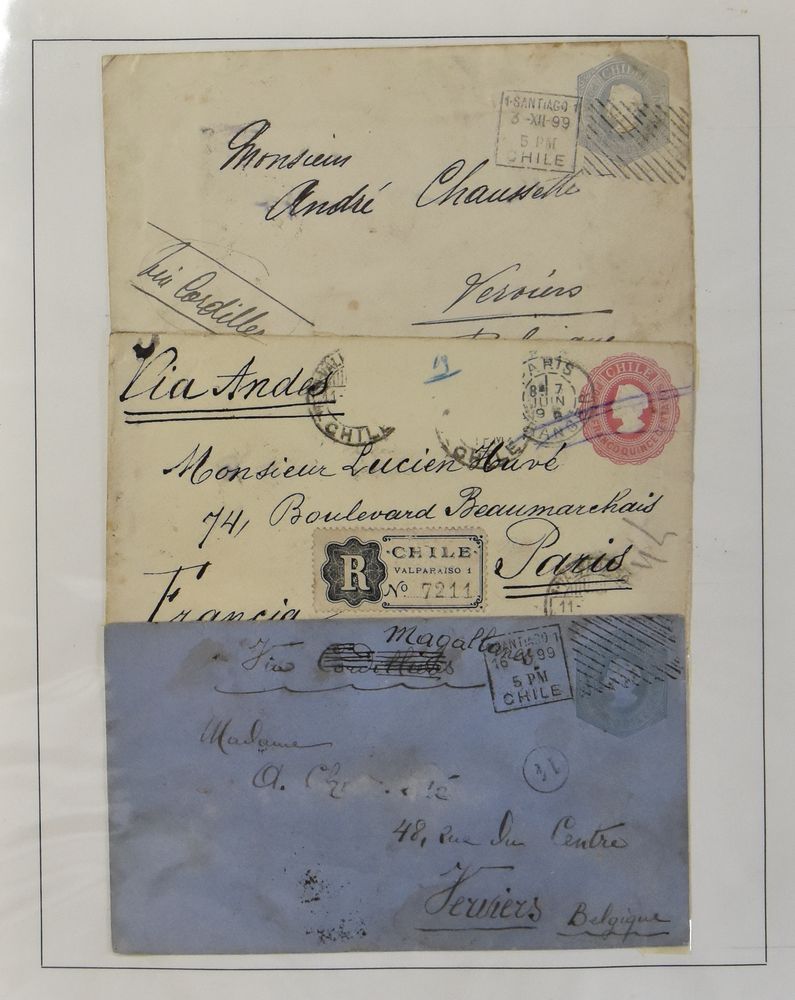 CHILE
1·SANTIAGO 1
3 -XII-99
5 PM
CHILE
Monsieur
André Chaussette
Via Cordillera
Verviers
Via Andes
CHILE
19
PARIS
7
JUIN
ETRANGER
CHILE
QUINCE CENTAVOS
Monsieur Lucien Huvé
74, Boulevard Beaumarchais
R
CHILE
VALPARAISO 1
No 7211
Paris
11-
Francia
Magallanes
Via
SANTIAGO 1
16 99
5 PM
CHILE
Madame
A.
14
48, rue du Centre
Verviers Belgique